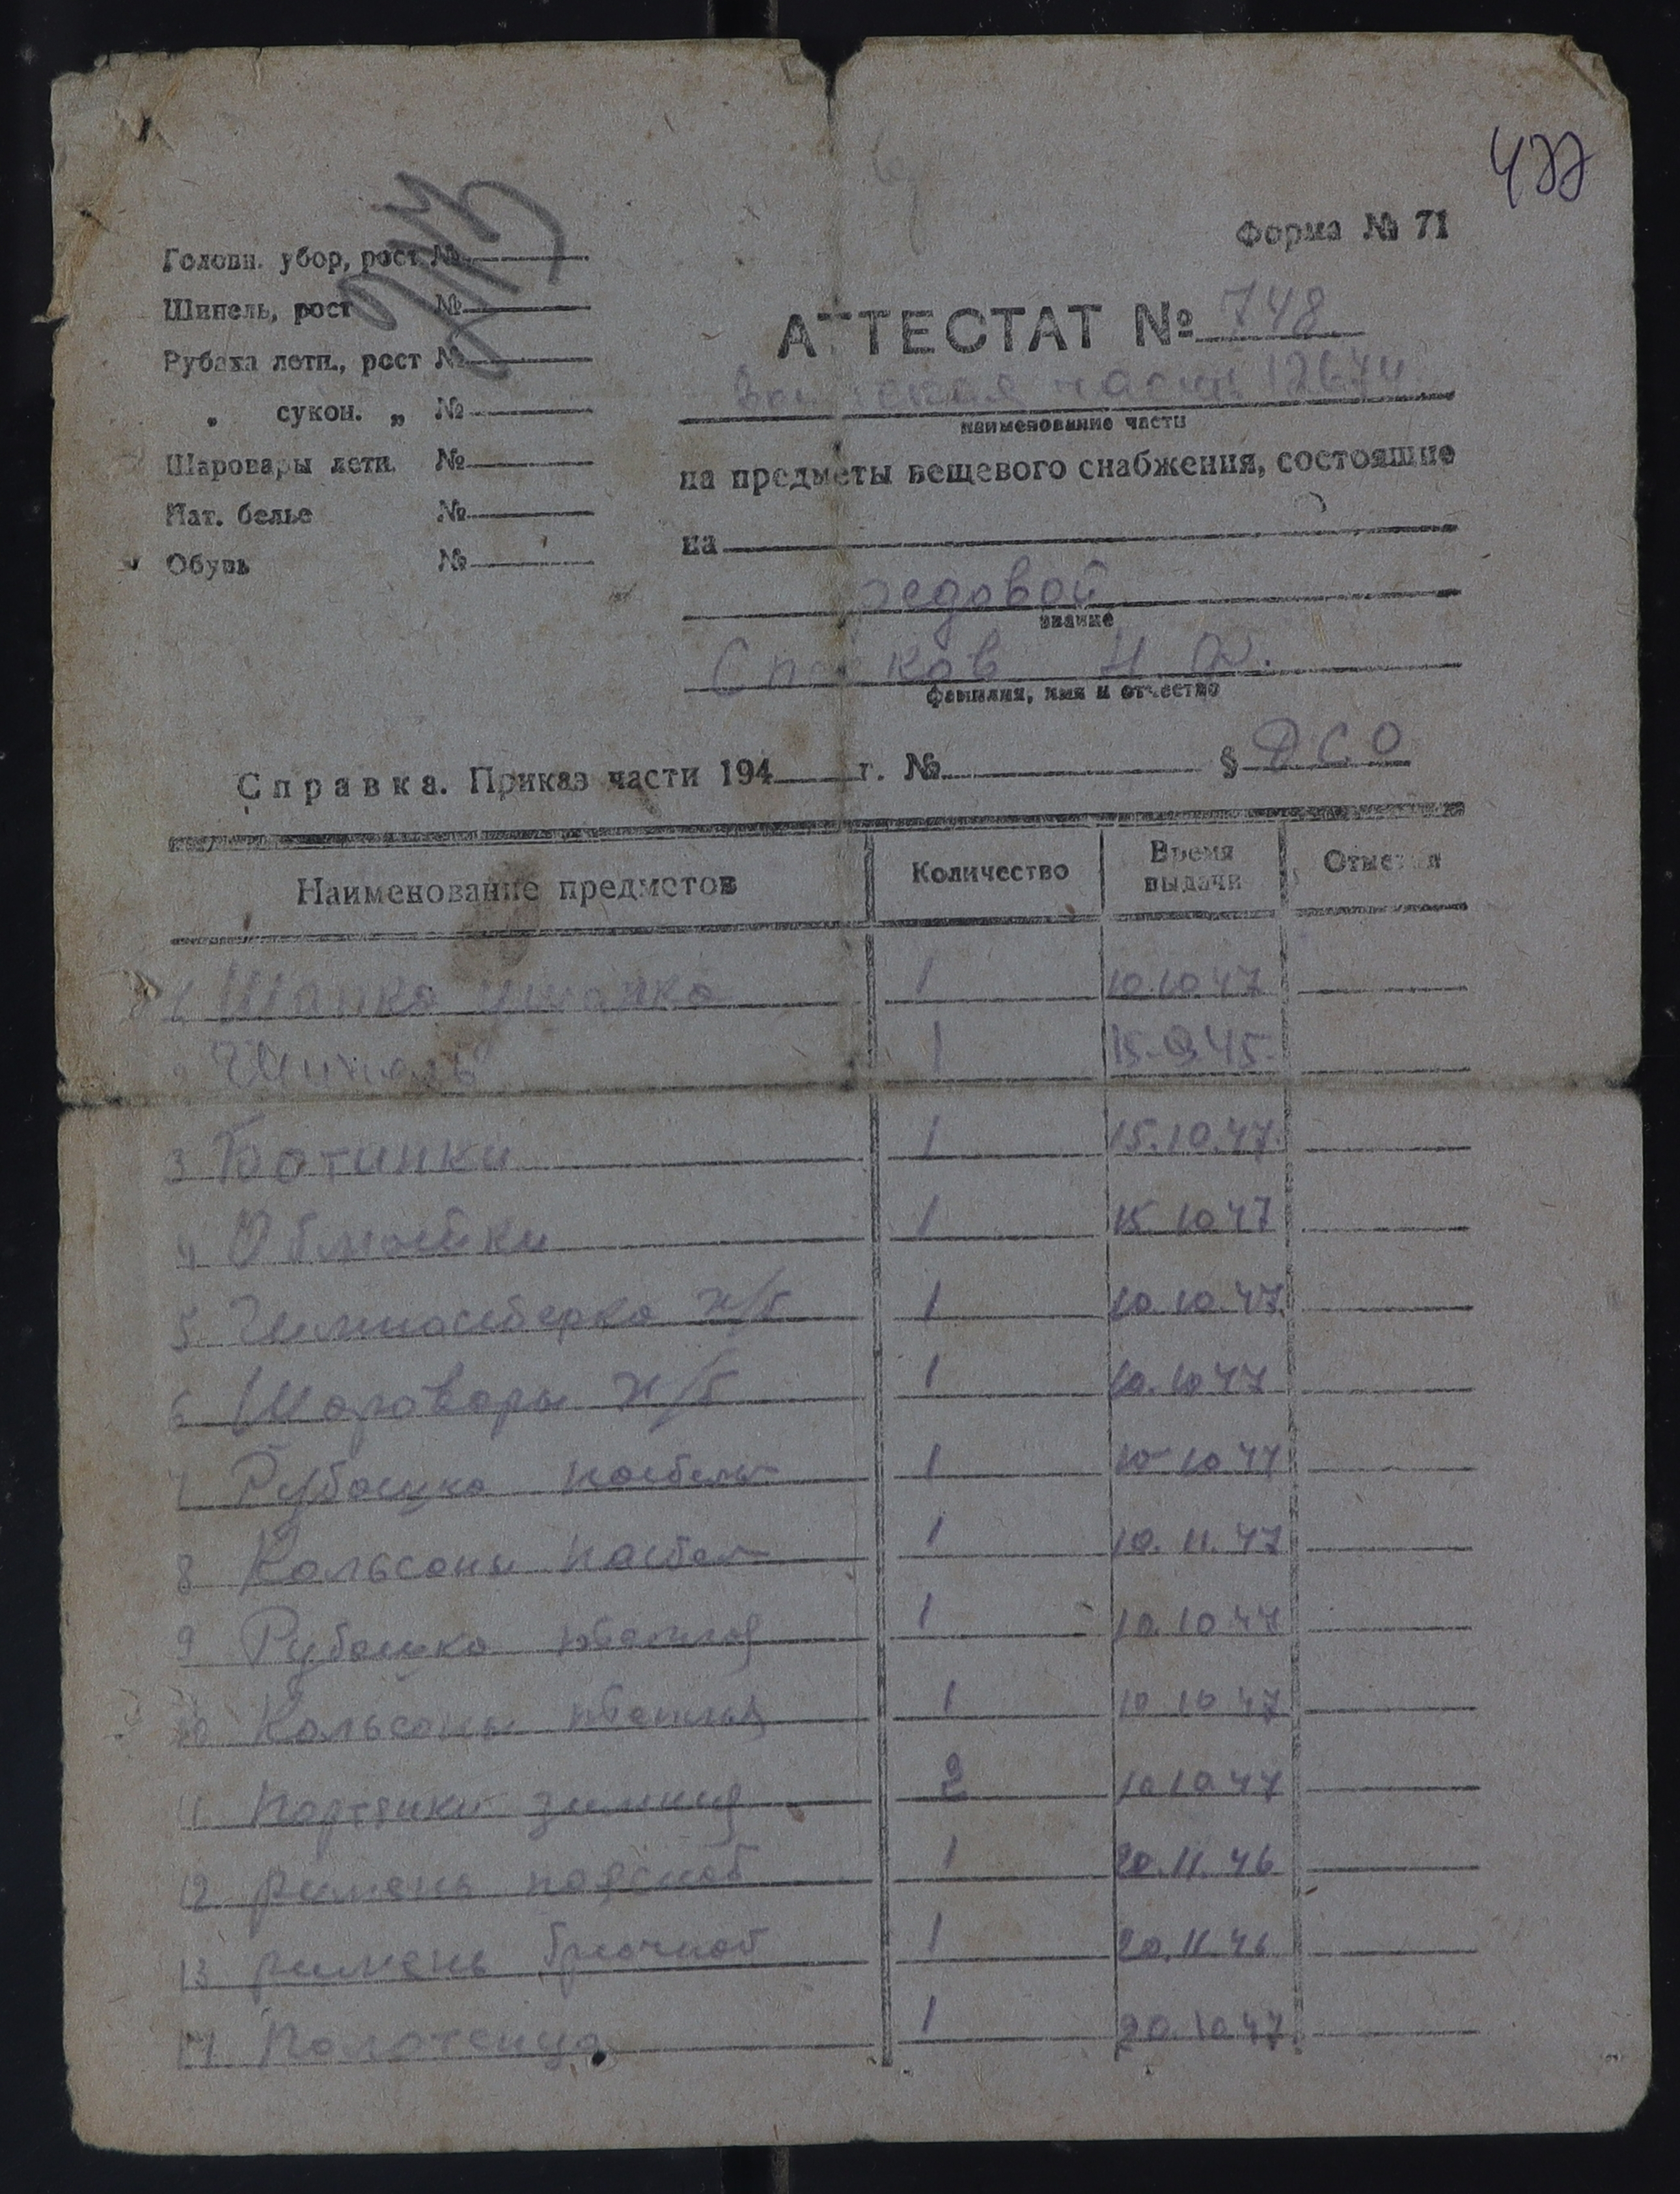 477
Форма № 71
Головн. убор, рост №
Шинель, рост №
Рубаха летн., рост №
„ сукон. „ №
Шаровары летн. №
Нат. белье №
Обувь №
АТТЕСТАТ № 748
часть 12674
наименование части
на предметы вещевого снабжения, состоящие
на
редовой
звание
фамилия, имя и отчество
Справка. Приказ части 194 г. № § РСО
Наименование предметов Количество Время выдачи Отметки
1 Шапка ушанка 1 10.10.47
2 Шинель 1 15.9.45
3 Ботинки 1 15.10.47
4 Обмотки 1 15.10.47
5 Гимностерка х/б 1 10.10.47
6 Шаровары х/б 1 10.10.47
7 Рубашка 1 10 10 47
8 Кальсоны 1 10.11.47
9 Рубашка 1 10.10.47
10 Кальсоны 1 10 10 47
11 Партянки зимния 2 10.10.47
12 ремень поясной 1 20.11.46
13 ремень брючной 1 20.11.46
14 Полотенца 1 20.10.47